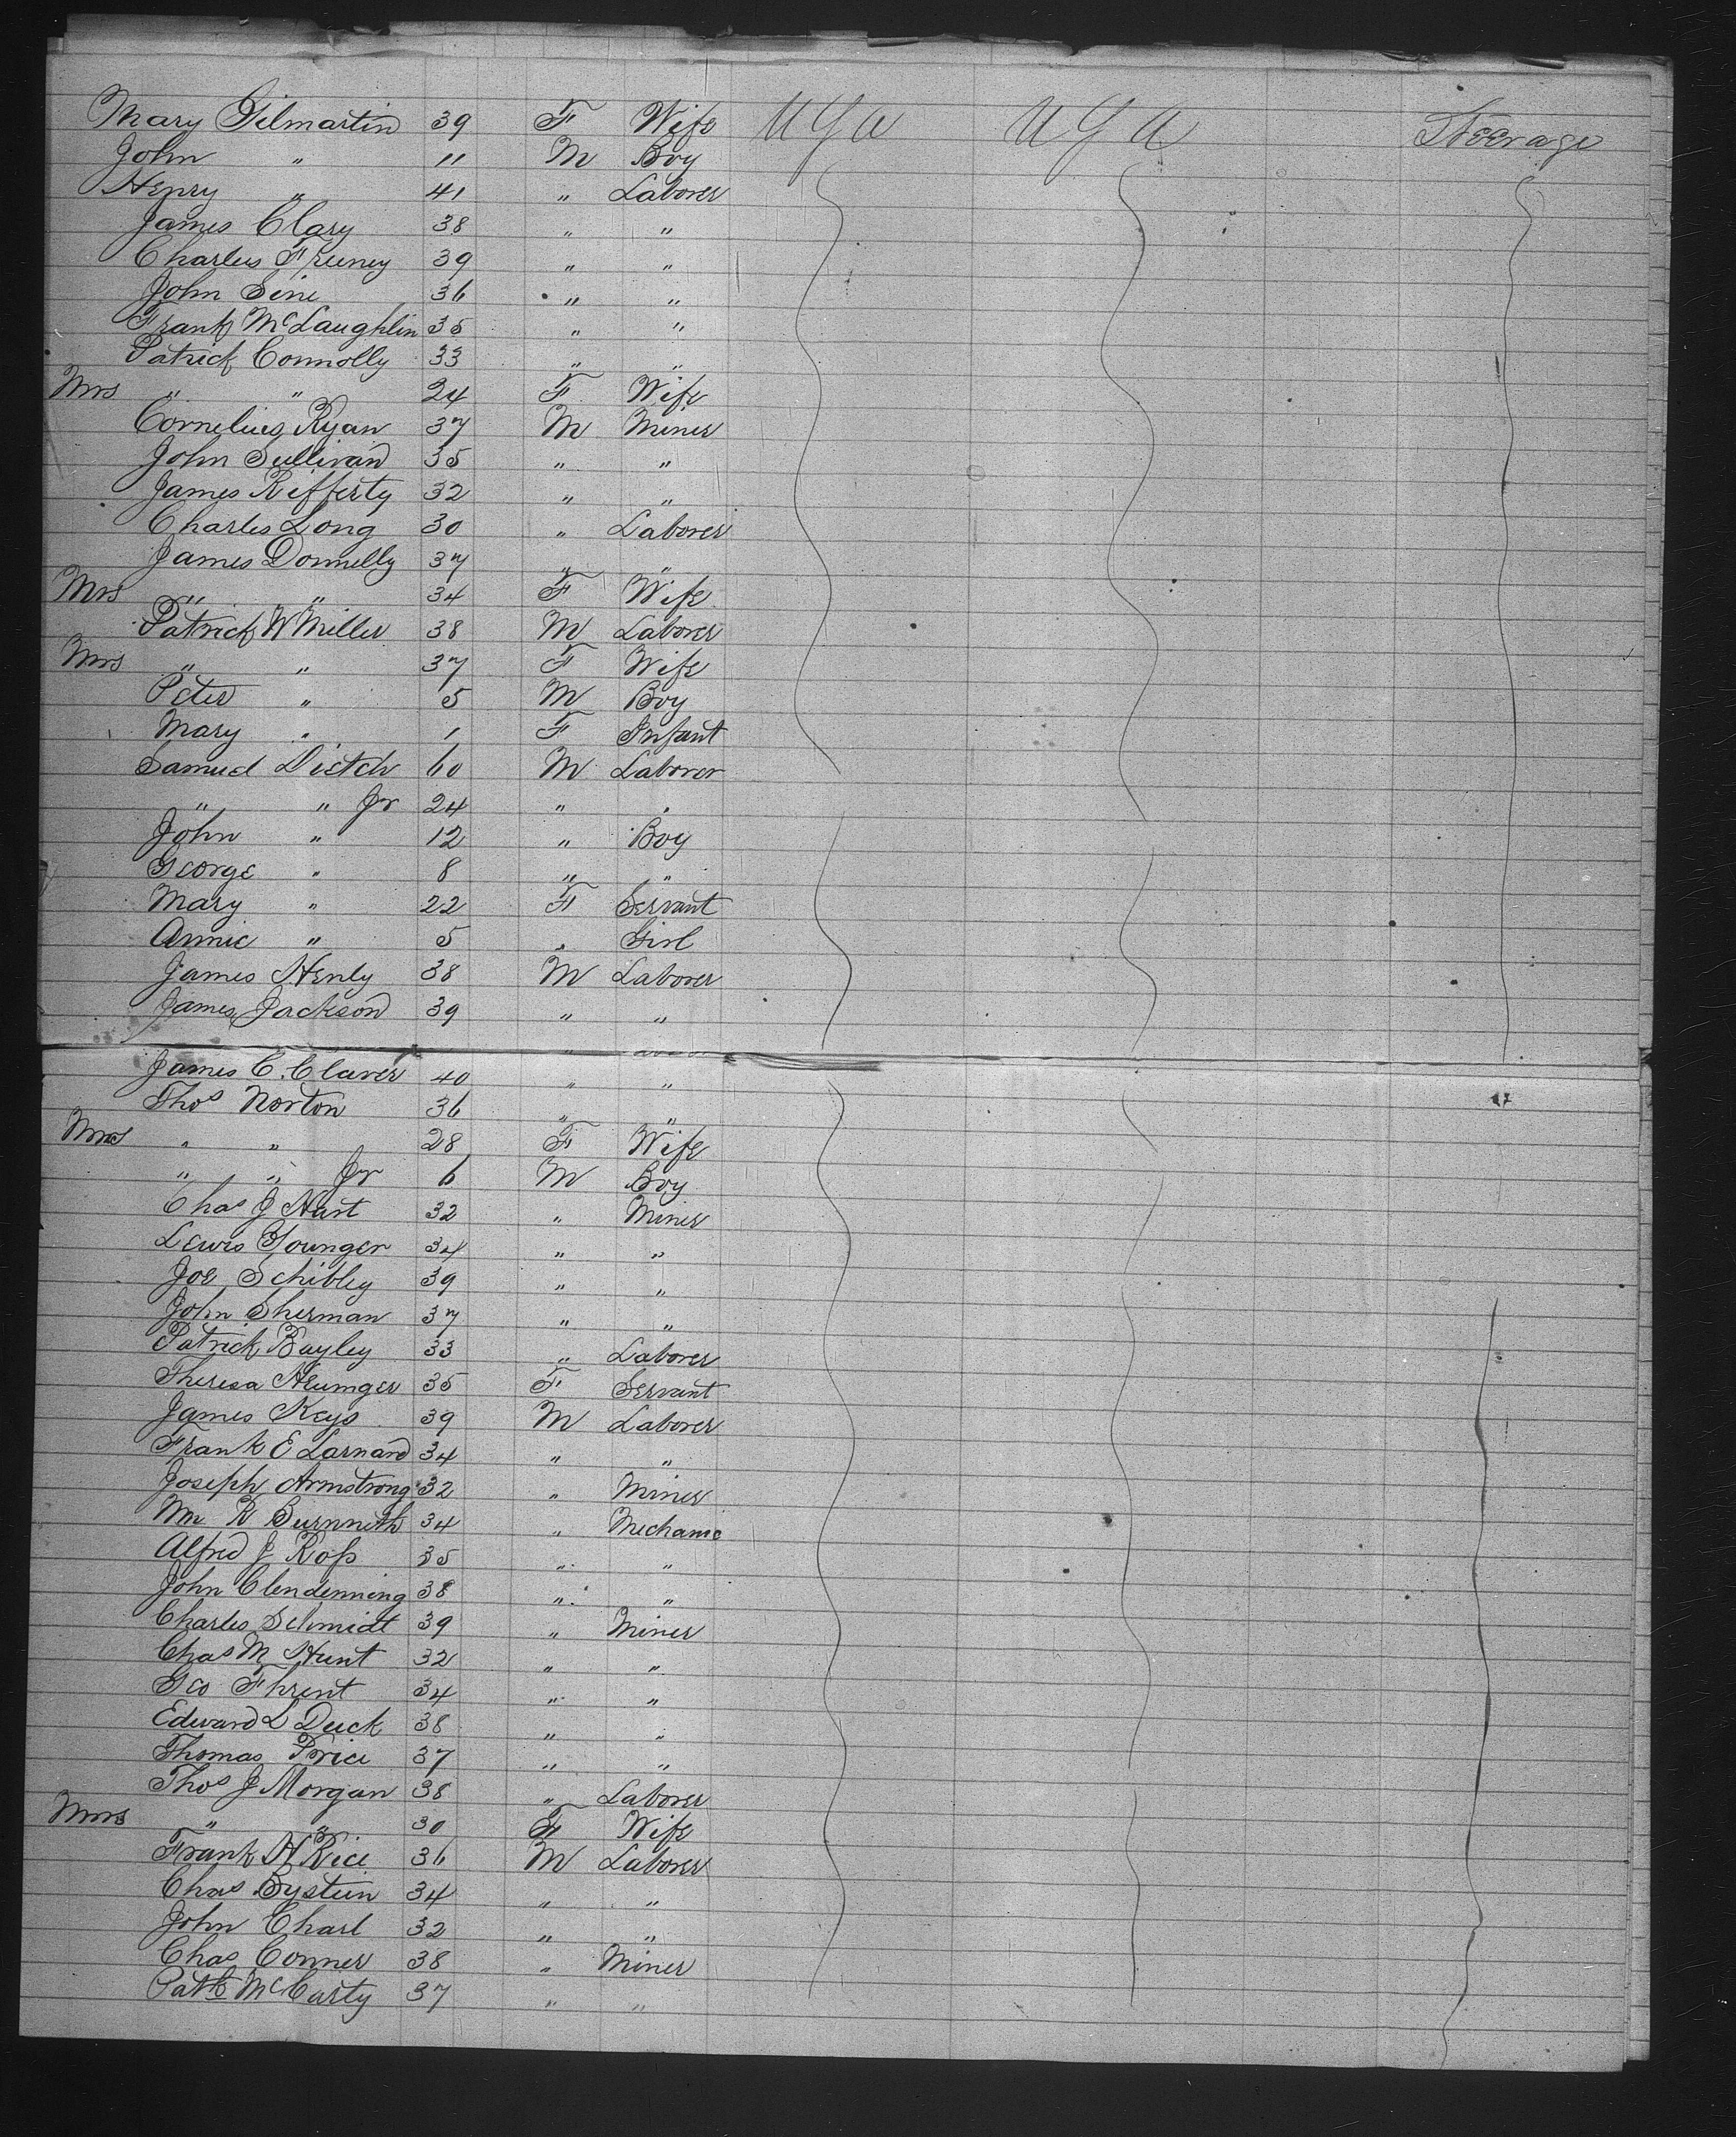 Mary Gilmartin 39 F Wife U S a U S A Steerage
John " 11 M Boy
Henry " 41 " Laborer
James Clary 38 " "
Charles Freeney 39 " "
John Sine 36 " "
Frank McLaughlin 35 " "
Patrick Connolly 33 " "
Mrs " " 24 F Wife
Cornelius Ryan 37 M Miner
John Sullivan 35 " "
James Rifferty 32 " "
Charles Long 30 " Laborer
James Donnelly 37 " "
Mrs " " 34 F Wife
Patrick W Miller 38 M Laborer
Mrs " " 37 F Wife
Peter " 5 M Boy
Mary " 1 F Infant
Samuel Dietch 60 M Laborer
" " Jr 24 " "
John " 12 " Boy
George " 8 " "
Mary " 22 F Servant
Annie " 5 " Girl
James Henly 38 M Laborer
James Jackson 39 " "
James C. Claver 40 " "
Thos Norton 36 " "
Mrs " " 28 F Wife
" " Jr 6 M Boy
Chas J Hart 32 " Miner
Lewis Younger 34 " "
Joe Schibley 39 " "
John Sherman 37 " "
Patrick Bayley 33 " Laborer
Theresa 35 F Servant
James Keys 39 M Laborer
Frank E Larnard 34 " "
Joseph Armstrong 32 " Miner
Wm R Burnneth 34 " Mechanic
Alfred J Ross 35 " "
John Clendenning 38 " "
Charles Schmidt 39 " Miner
Chas M Hunt 32 " "
Geo 34 " "
Edward L Duck 38 " "
Thomas Price 37 " "
Thos J Morgan 38 " Laborer
Mrs " " 30 F Wife
Frank H Rice 36 M Laborer
Chas 34 " "
John Charl 32 " "
Chas Conner 38 " Miner
Patk McCarty 37 " "